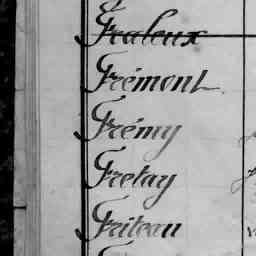 Fraleux
Frémont
Frémy
Fretay
Friteau